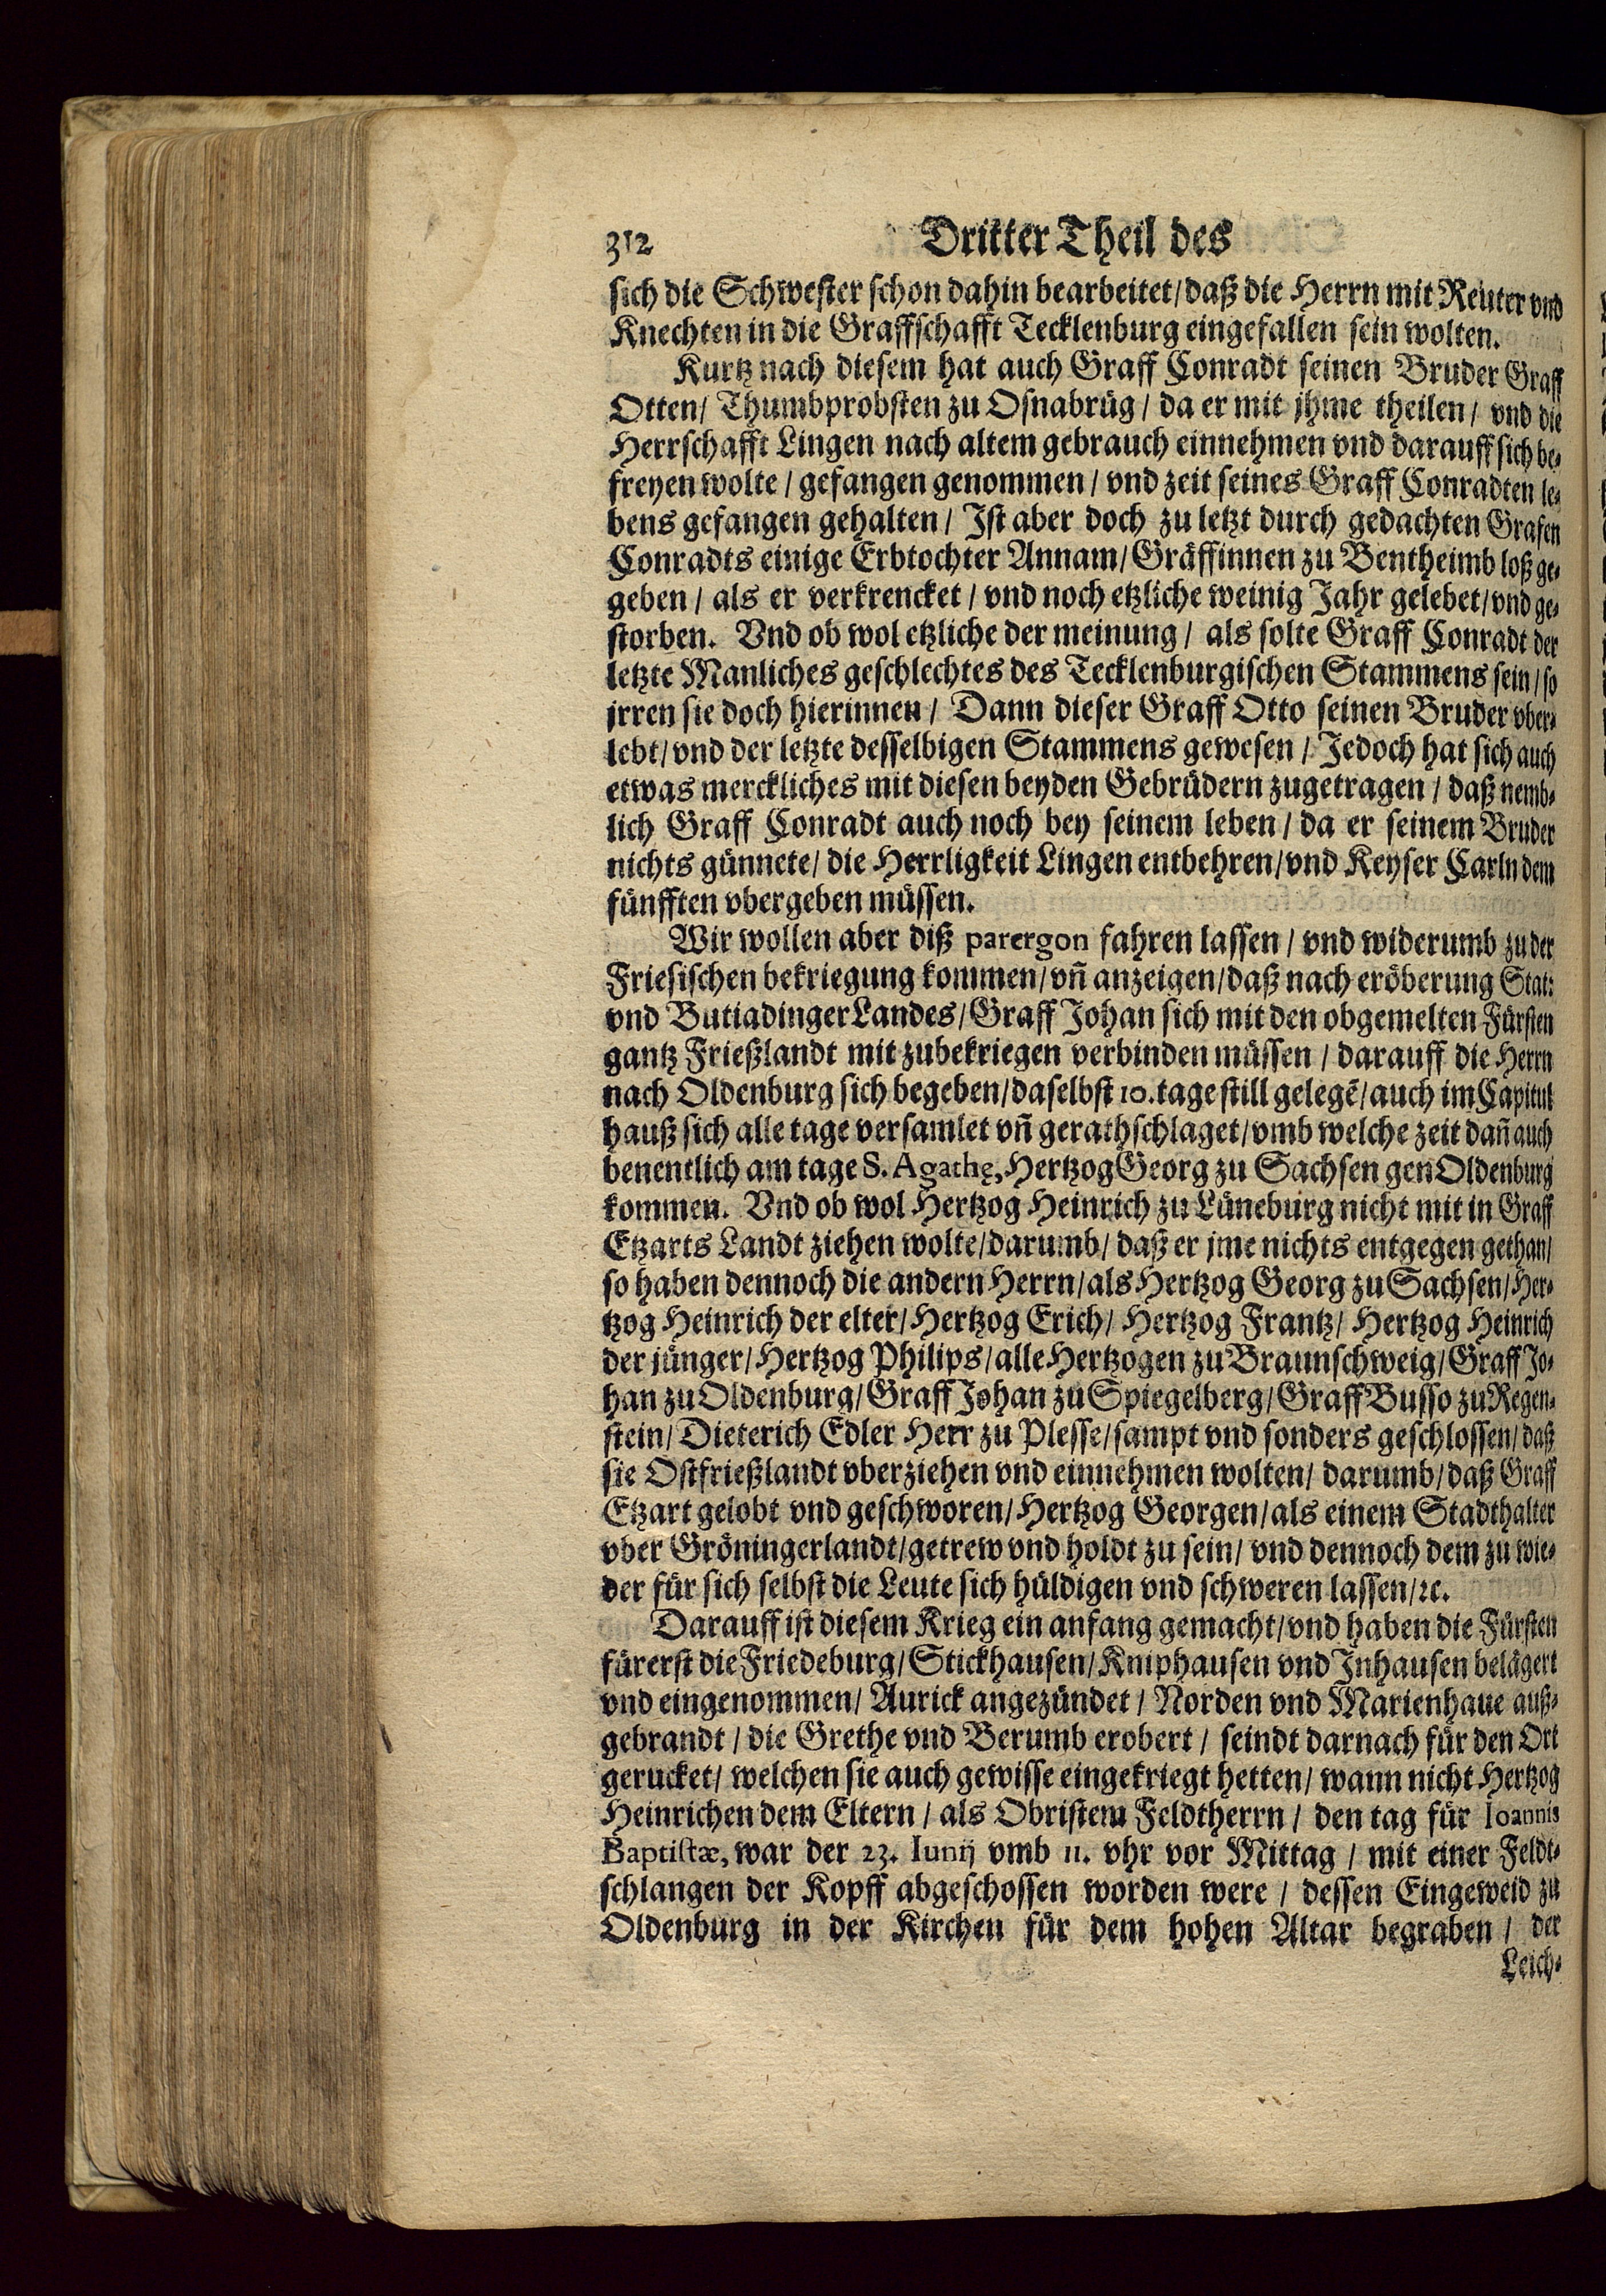 312 Dritter Theil des
sich die Schwester schon dahin bearbeitet/ daß die Herrn mit Reuter vnd
Knechten in die Graffschafft Tecklenburg eingefallen sein wolten.
Kurtz nach diesem hat auch Graff Conradt seinen Bruder Graff
Otten/ Thumbprobsten zu Osnabrüg/ da er mit jhme theilen/ vnd die
Herrschafft Lingen nach altem gebrauch einnehmen vnd darauff sich be-
freyen wolte/ gefangen genommen/ vnd zeit seines Graff Conradten le-
bens gefangen gehalten/ Ist aber doch zu letzt durch gedachten Grafen
Conradts einige Erbtochter Annam/ Gräffinnen zu Bentheimb loß ge-
geben/ als er verkrencket/ vnd noch etzliche weinig Jahr gelebet/ vnd ge-
storben. Vnd ob wol etzliche der meinung/ als solte Graff Conradt der
letzte Manliches geschlechtes des Tecklenburgischen Stammens sein/ so
jrren sie doch hierinnen/ Dann dieser Graff Otto seinen Bruder vber-
lebt/ vnd der letzte desselbigen Stammens gewesen/ Jedoch hat sich auch
etwas merckliches mit diesen beyden Gebrüdern zugetragen/ daß nemb-
lich Graff Conradt auch noch bey seinem leben/ da er seinem Bruder
nichts günnete/ die Herrligkeit Lingen entbehren/ vnd Keyser Carln dem
fünfften vbergeben müssen.
Wir wollen aber diß parergon fahren lassen/ vnd widerumb zu der
Friesischen bekriegung kommen/ vñ anzeigen/ daß nach eröberung Stat:
vnd Butiadinger Landes/ Graff Johan sich mit den obgemelten Fürsten
gantz Frießlandt mit zubekriegen verbinden müssen/ darauff die Herrn
nach Oldenburg sich begeben/ daselbst 10. tage still gelegē/ auch im Capitul
hauß sich alle tage versamlet vñ gerathschlaget/ vmb welche zeit dañ auch
benentlich am tage S. Agathę, Hertzog Georg zu Sachsen gen Oldenburg
kommen. Vnd ob wol Hertzog Heinrich zu Lüneburg nicht mit in Graff
Etzarts Landt ziehen wolte/ darumb/ daß er jme nichts entgegen gethan/
so haben dennoch die andern Herrn/ als Hertzog Georg zu Sachsen/ Her-
tzog Heinrich der elter/ Hertzog Erich/ Hertzog Frantz/ Hertzog Heinrich
der jünger/ Hertzog Philips/ alle Hertzogen zu Braunschweig/ Graff Jo-
han zu Oldenburg/ Graff Johan zu Spiegelberg/ Graff Busso zu Regen-
stein/ Dieterich Edler Herr zu Plesse/ sampt vnd sonders geschlossen/ daß
sie Ostfrießlandt vberziehen vnd einnehmen wolten/ darumb/ daß Graff
Etzart gelobt vnd geschworen/ Hertzog Georgen/ als einem Stadthalter
vber Gröningerlandt/ getrew vnd holdt zu sein/ vnd dennoch dem zu wie-
der für sich selbst die Leute sich hüldigen vnd schweren lassen/ ꝛc.
Darauff ist diesem Krieg ein anfang gemacht/ vnd haben die Fürsten
fürerst die Friedeburg/ Stickhausen/ Kniphausen vnd Inhausen belägert
vnd eingenommen/ Aurick angezündet/ Norden vnd Marienhaue auß-
gebrandt/ die Grethe vnd Berumb erobert/ seindt darnach für den Ort
gerucket/ welchen sie auch gewisse eingekriegt hetten/ wann nicht Hertzog
Heinrichen dem Eltern/ als Obristem Feldtherrn/ den tag für Ioannis
Baptistæ, war der 23. Iunij vmb 11. vhr vor Mittag/ mit einer Feldt-
schlangen der Kopff abgeschossen worden were/ dessen Eingeweid zu
Oldenburg in der Kirchen für dem hohen Altar begraben/ der
Leich-